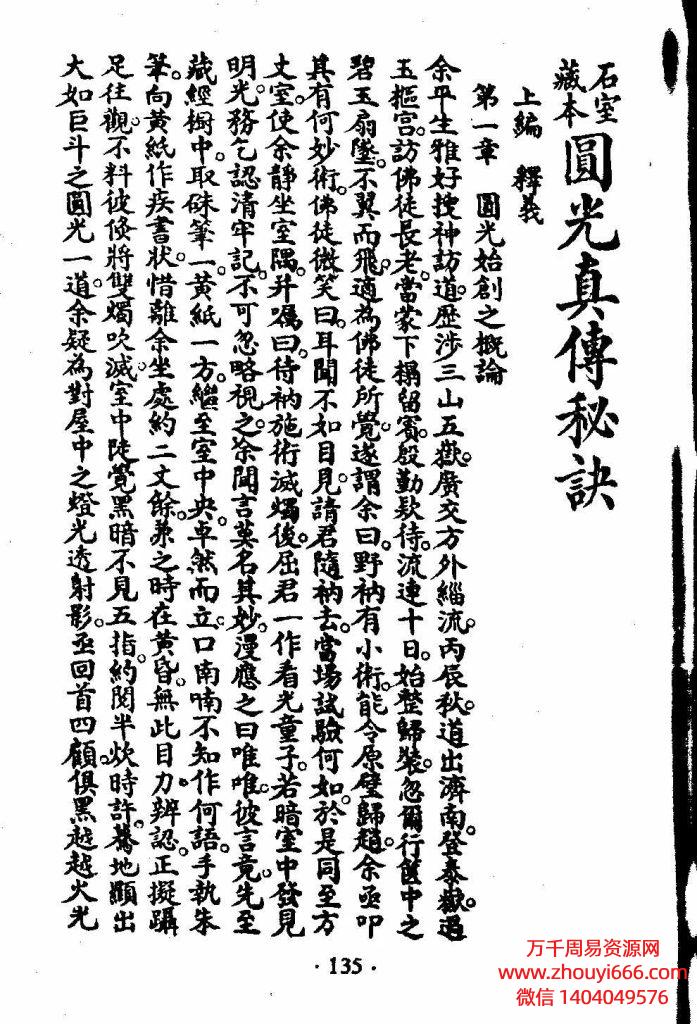 石室
藏本
圓光真傳秘訣
上編　釋義
第一章　圓光始創之概論
余平生雅好搜神訪道。歷涉三山五嶽。廣交方外緇流。丙辰秋。道出濟南。登泰嶽。過
玉樞宮。訪佛徒長老。當蒙下榻留賓。殷勤款待。流連十日。始整歸裝。忽爾行篋中之
碧玉扇墜。不翼而飛。適為佛徒所覺。遂謂余曰。野衲有小術。能令原璧歸趙。余亟叩
其有何妙術。佛徒微笑曰。耳聞不如目見。請君隨衲去。當場試驗何如。於是同至方
丈室。使余靜坐室隅。并囑曰。待衲施術滅燭後。屈君一作看光童子。若暗室中發見
明光。務乞認清牢記。不可忽略視之。余聞言莫名其妙。漫應之曰唯唯。彼言竟。先至
藏經橱中。取硃筆一。黃紙一方。繼至室中央。卓然而立。口南喃不知作何語。手執朱
筆。向黃紙作疾書狀。惜離余坐處約二丈餘。兼之時在黃昏。無此目力辨認。正擬躡
足往觀。不料彼倏將雙燭吹滅。室中陡覺黑暗不見五指。約閱半炊時許。驀地顯出
大如巨斗之圓光一道。余疑為對屋中之燈光透射影。亟回首四顧。俱黑越越火光
·135·
万千周易资源网
www.zhouyi666.com
微信 1404049576